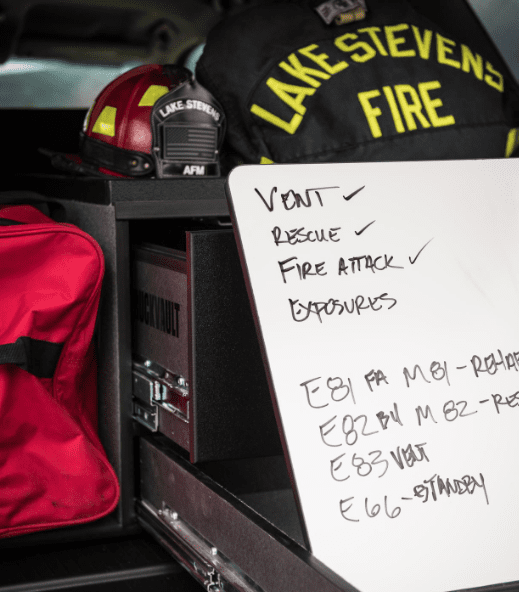 LAKE STEVENS
FIRE
LAKE STEVENS
AFM
VENT ✓
RESCUE ✓
FIRE ATTACK ✓
EXPOSURES
E81 FA M81-REHA
E82 M82-RES
E83 VENT
E66-STANDBY